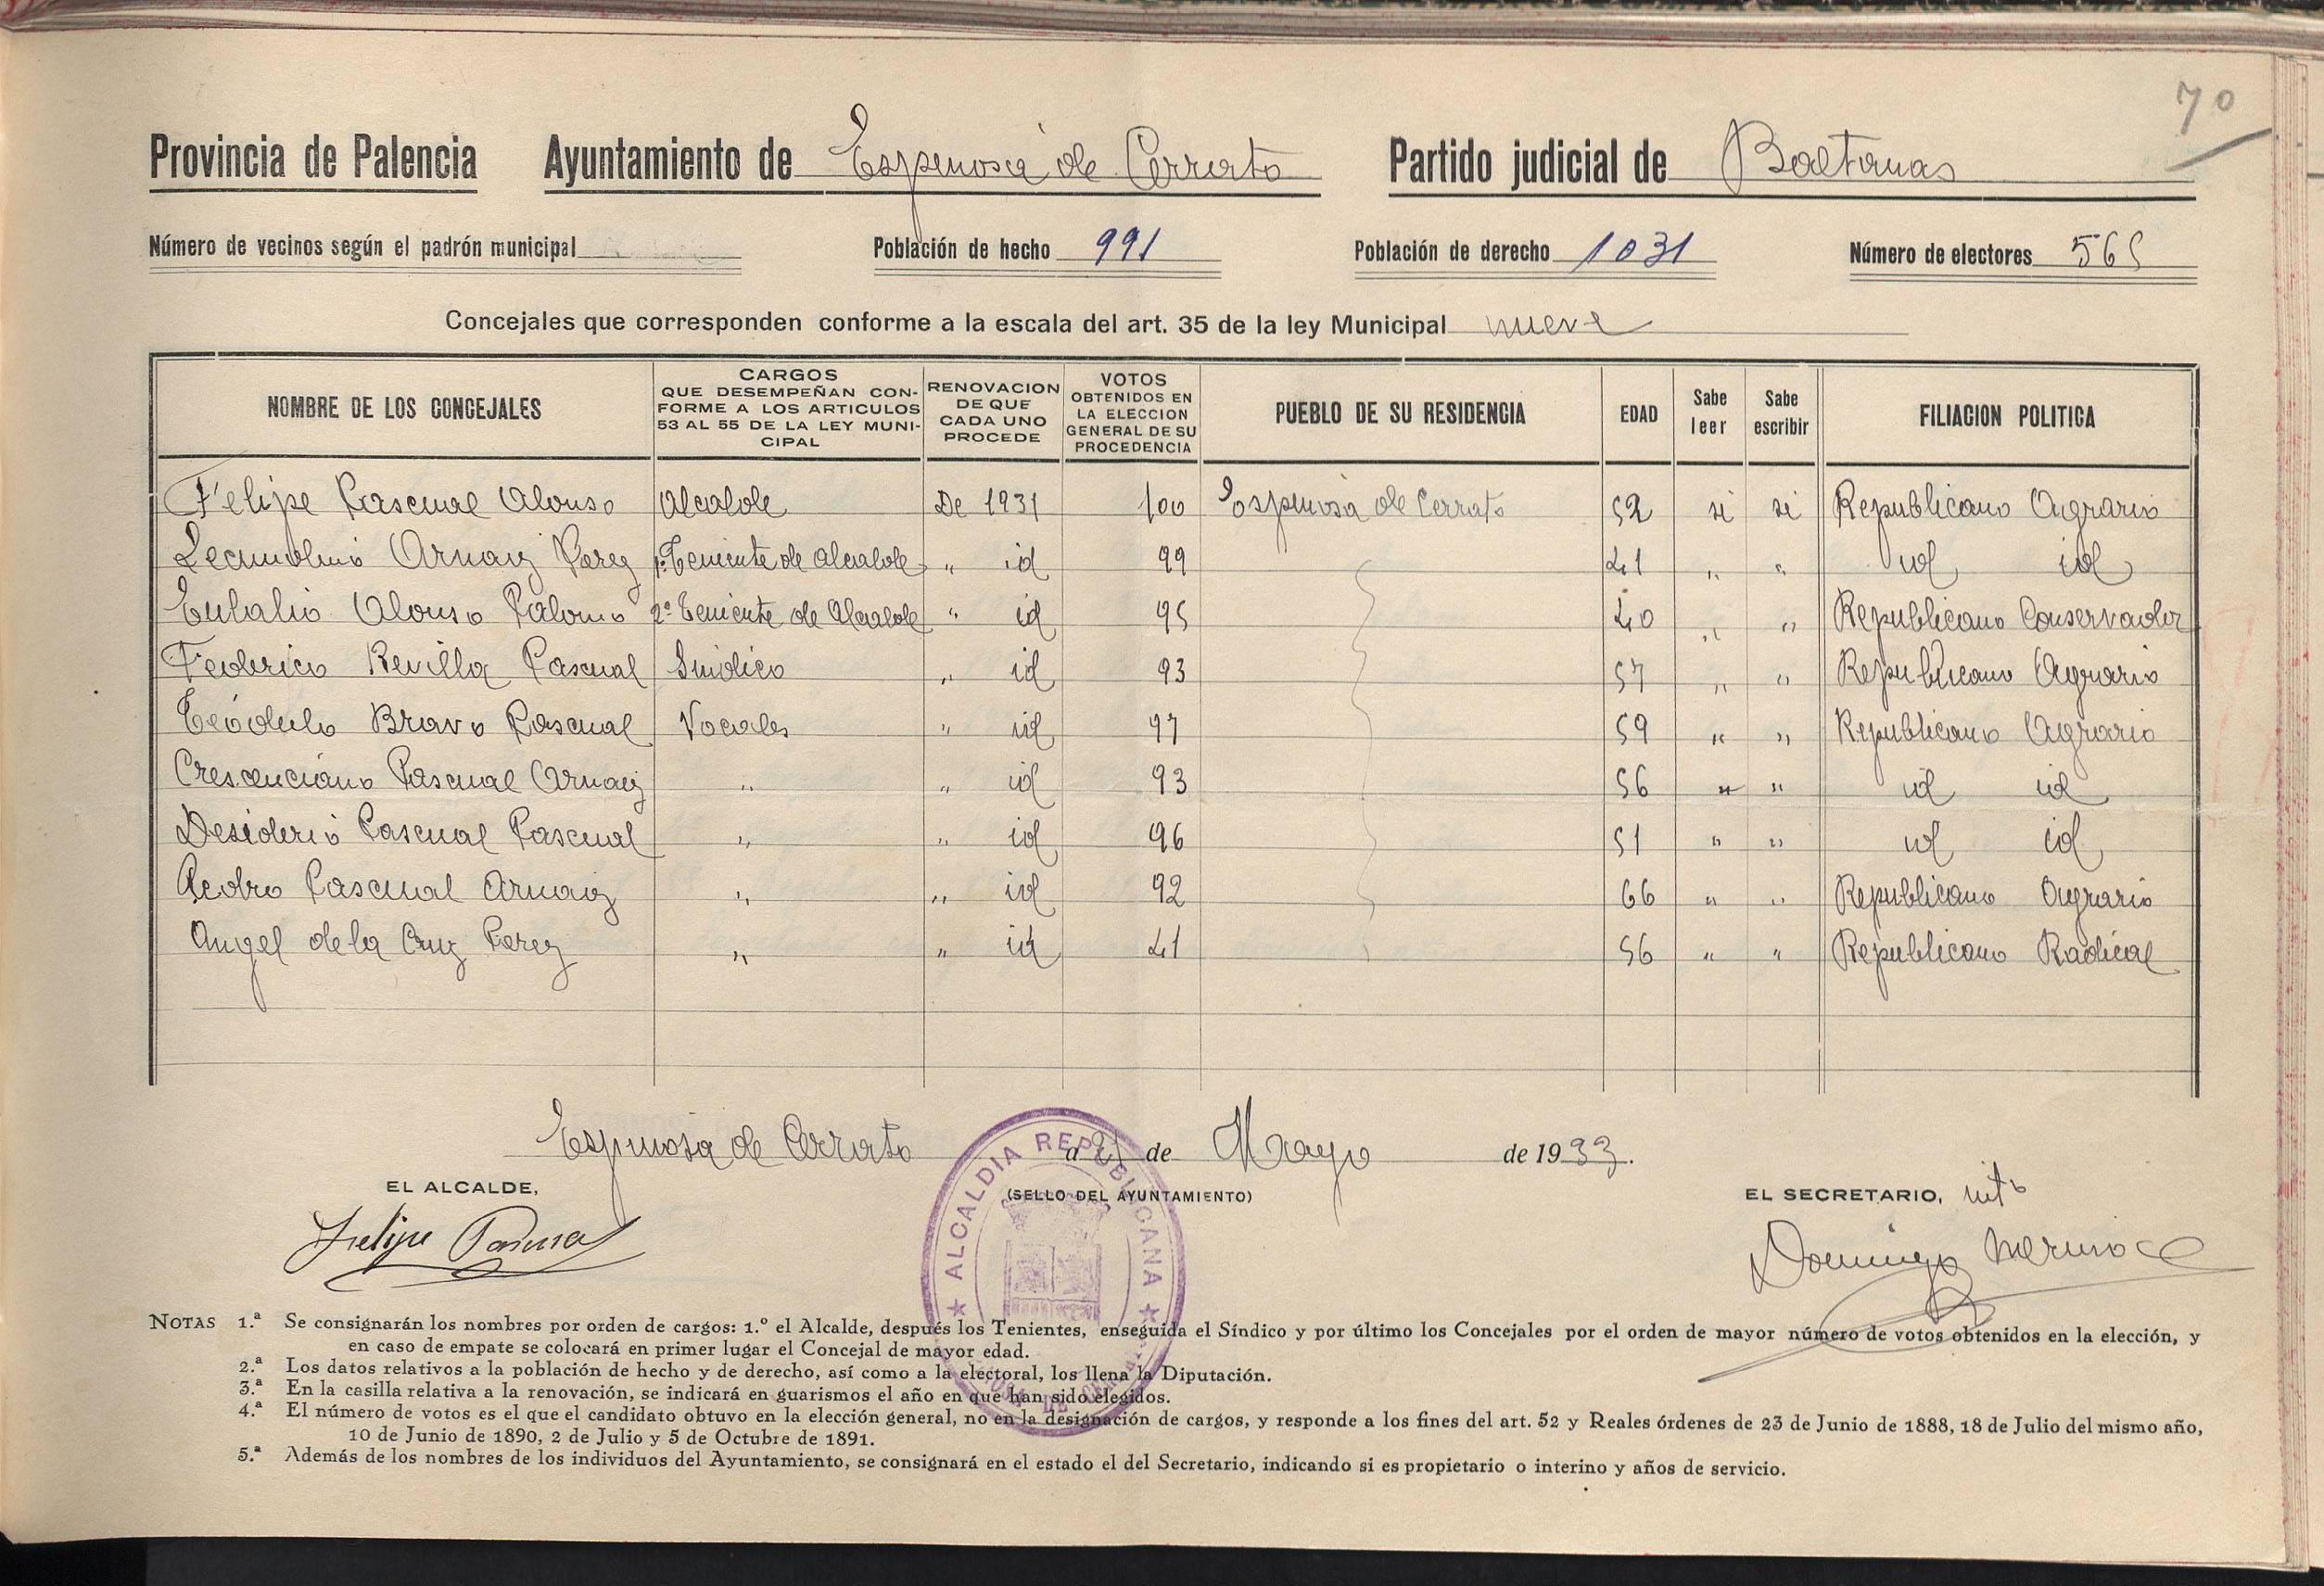 70
Provincia de Palencia Ayuntamiento de Espinosa de Cerrato Partido judicial de Baltanas
Número de vecinos según el padrón municipal Población de hecho 991 Población de derecho 1031 Número de electores 565
Concejales que corresponden conforme a la escala del art. 35 de la ley Municipal nueve
NOMBRE DE LOS CONCEJALES
CARGOS
QUE DESEMPEÑAN CON-
FORME A LOS ARTICULOS
53 AL 55 DE LA LEY MUNI-
CIPAL
RENOVACION
DE QUE
CADA UNO
PROCEDE
VOTOS
OBTENIDOS EN
LA ELECCION
GENERAL DE SU
PROCEDENCIA
PUEBLO DE SU RESIDENCIA
EDAD
Sabe
leer
Sabe
escribir
FILIACION POLITICA
Felipe Pascual Alonso Alcalde De 1931 100 Espinosa de Cerrato 52 si si Republicano Agrario
Secundino Arnaiz Perez 1º Teniente de alcalde " id 99 41 " " id id
Eulalio Alonso Palomo 2º Teniente de Alcalde " id 95 40 " " Republicano Conservador
Federico Revilla Pascual Sindico " id 93 57 " " Republicano Agrario
Teódulo Bravo Pascual Vocales " id 97 59 " " Republicano Agrario
Crescenciano Pascual Arnaiz " " id 93 56 " " id id
Desiderio Pascual Pascual " " id 96 51 " " id id
Pedro Pascual Arnaiz " " id 92 66 " " Republicano Agrario
Angel de la Cruz Perez " " id 41 56 " " Republicano Radical
Espinosa de Cerrato a de Mayo de 1933.
EL ALCALDE,
(SELLO DEL AYUNTAMIENTO)
EL SECRETARIO, intº
Felipe Pascual
Domingo Merino
★ ALCALDIA REPUBLICANA ★
NOTAS 1.ª Se consignarán los nombres por orden de cargos: 1.º el Alcalde, después los Tenientes, enseguida el Síndico y por último los Concejales por el orden de mayor número de votos obtenidos en la elección, y
en caso de empate se colocará en primer lugar el Concejal de mayor edad.
2.ª Los datos relativos a la población de hecho y de derecho, así como a la electoral, los llena la Diputación.
3.ª En la casilla relativa a la renovación, se indicará en guarismos el año en que han sido elegidos.
4.ª El número de votos es el que el candidato obtuvo en la elección general, no en la designación de cargos, y responde a los fines del art. 52 y Reales órdenes de 23 de Junio de 1888, 18 de Julio del mismo año,
10 de Junio de 1890, 2 de Julio y 5 de Octubre de 1891.
5.ª Además de los nombres de los individuos del Ayuntamiento, se consignará en el estado el del Secretario, indicando si es propietario o interino y años de servicio.